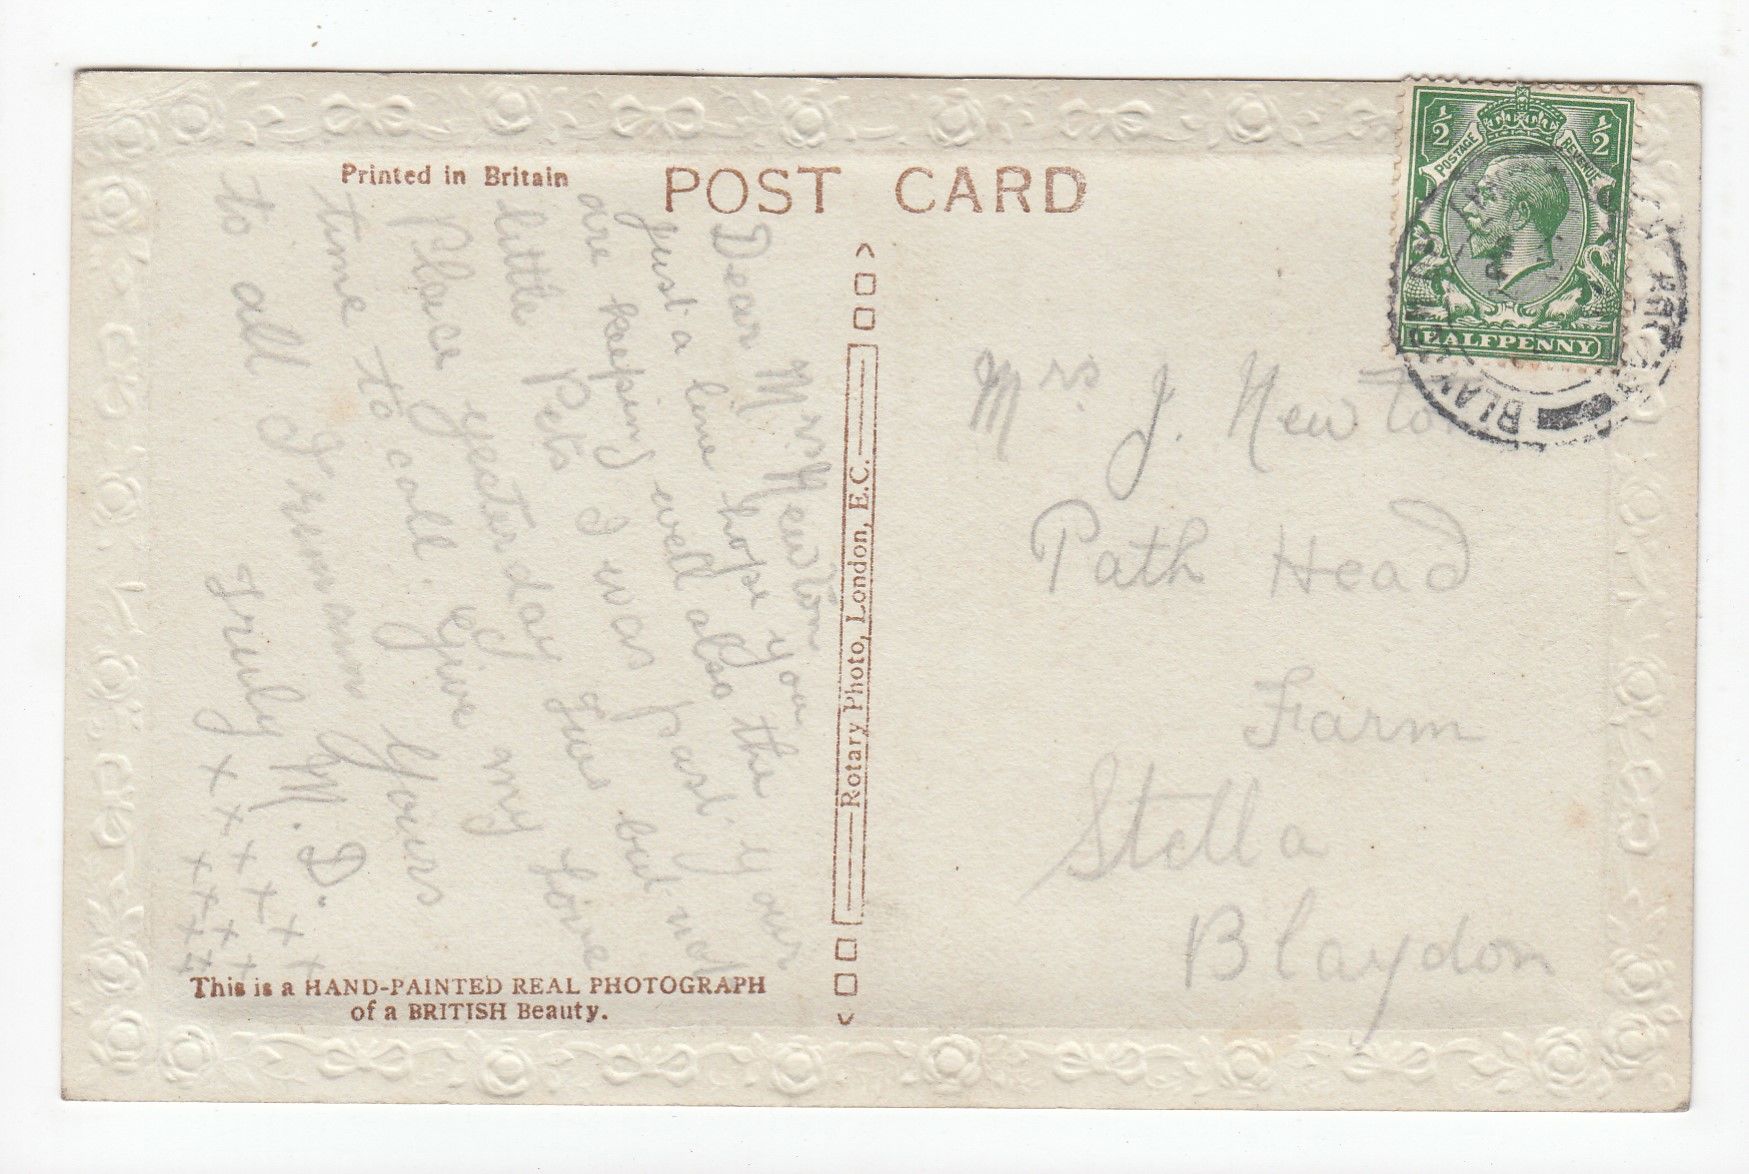 Printed in Britain
POST CARD
½ ½
POSTAGE REVENUE
HALFPENNY
Dear Mrs Newton
Just a line hope you
are keeping well also the
little Pets I was past your
Place yesterday but not
time to call. Give my love
to all I remain Yours
Truly M. D.
x x x x x x
x x x x x
x x x
Mrs. J. Newton
Path Head
Farm
Stella
Blaydon
Rotary Photo, London, E.C.
This is a HAND-PAINTED REAL PHOTOGRAPH
of a BRITISH Beauty.